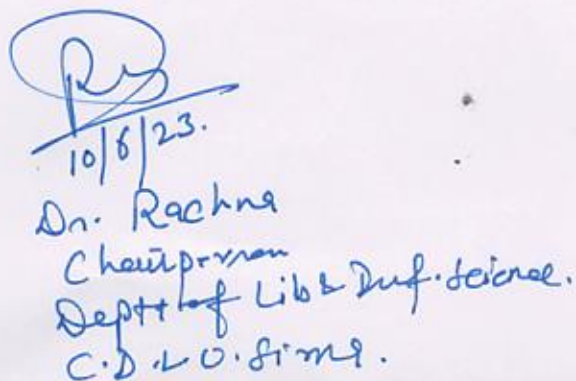 10/6/23.
Dr. Rachna
Chairperson
Deptt of Lib & Inf. Science.
C.D.L.U. Sirsa.